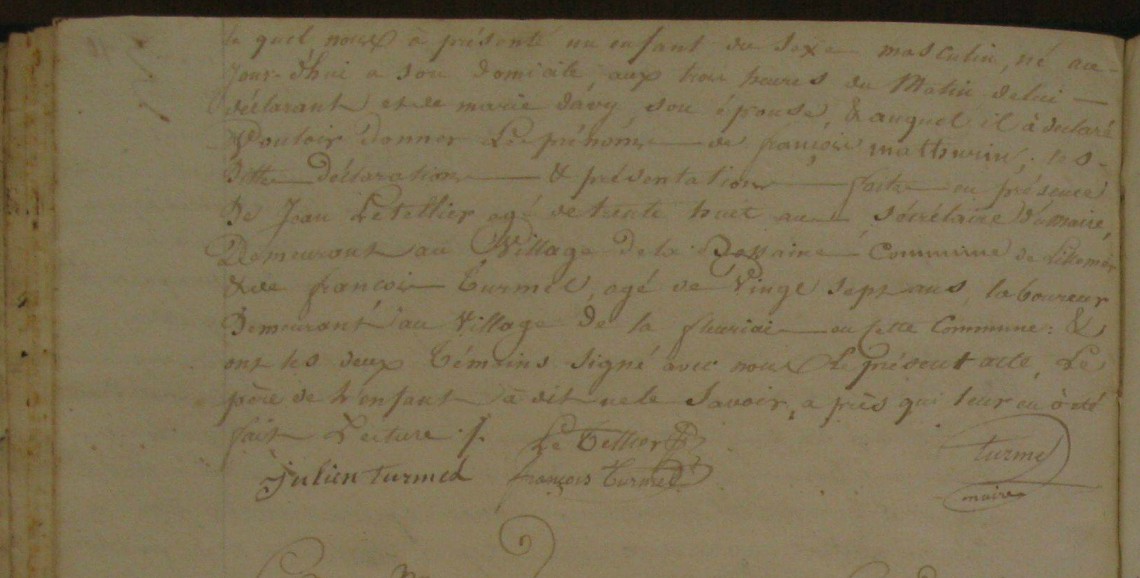 le quel nous a présenté un enfant du sexe masculin, né au-
jour-d'hui a son domicile aux trois heures du Matin de lui —
déclarant et de marie davy son épouse, & auquel il à déclaré
Vouloir donner Le prénoms de françois mathurin; les-
dittes déclaration & présentation faite en présence
De Jean Letellier agé de trente huit ans sécrélaire
Demeurant au Village de la commune de Lillemer
& de françois Turmel, agé de Vingt sept ans, laboureur
Demeurant au Village de la fleuriai en cette Commune: &
ont les deux Témoins signé avec nous le présent acte, Le
père de l'enfant à dit ne le Savoir, a près qui leur en à été
fait Lecture ./.
Le Tellier
turmel
Julien turmel françois Turmel
maire